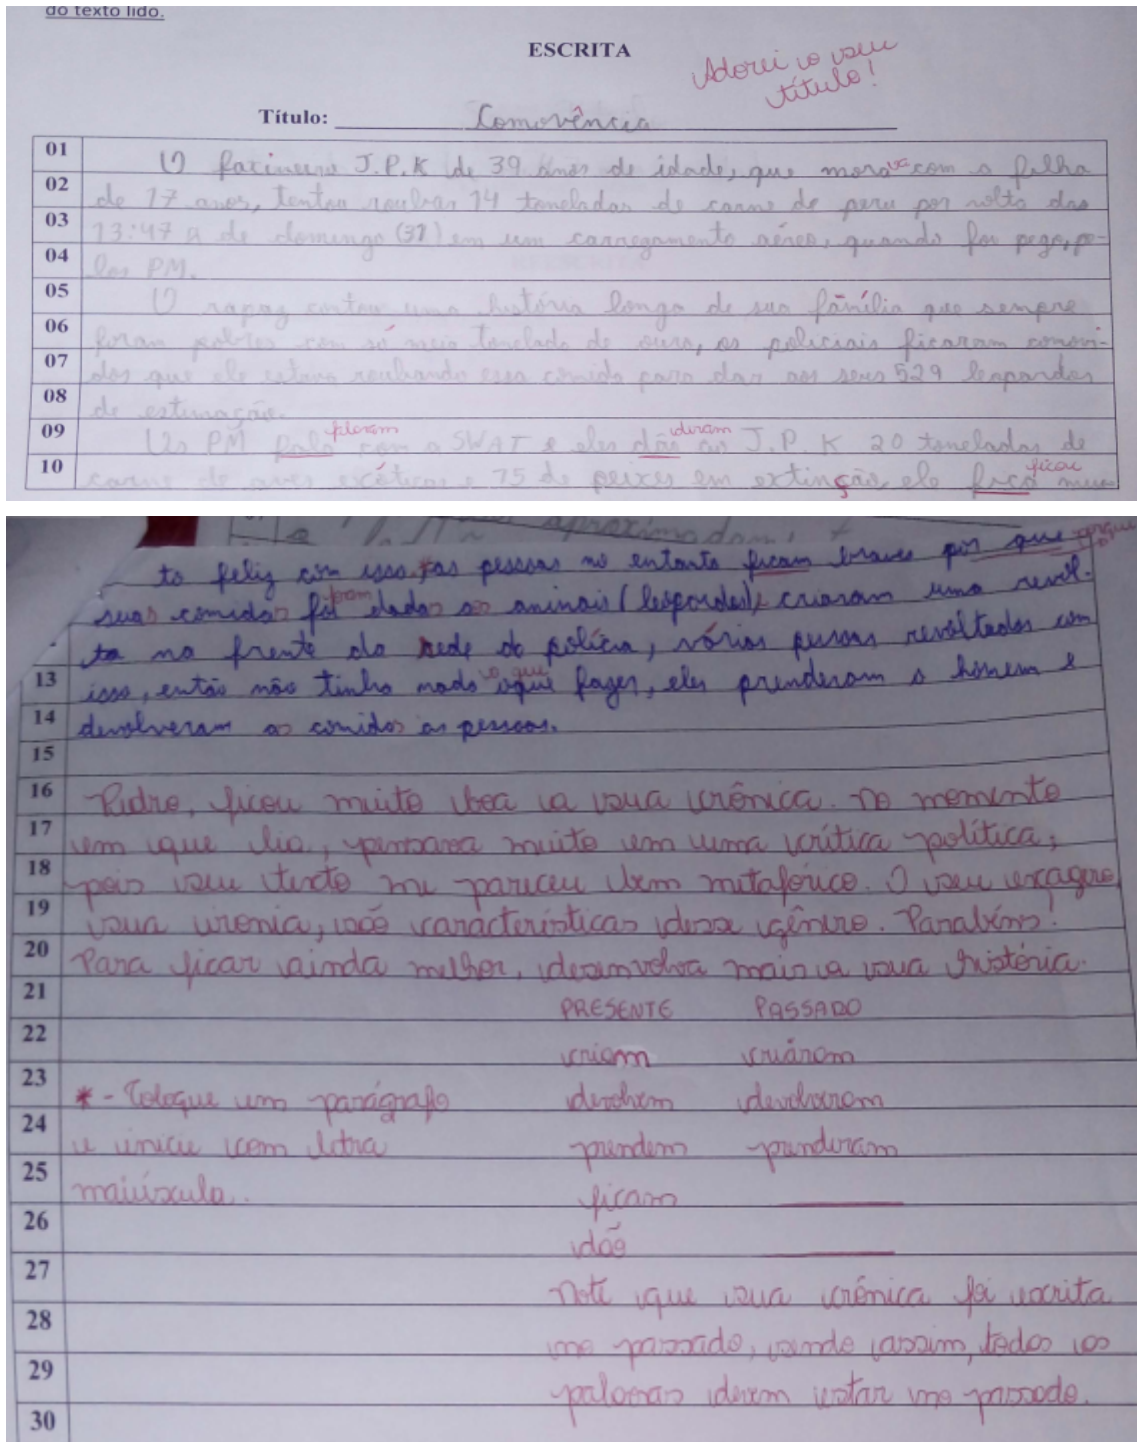 do texto lido.
ESCRITA
Adorei o seu
título!
Título: Comovência
01 O faxineiro J.P.K de 39 anos de idade, que morava com a filha
02 de 17 anos, tentou roubar 14 toneladas de carne de peru por volta das
03 13:47 a de domingo (31) em um carregamento aéreo, quando foi pego, pe-
04 los PM.
05 O rapaz contou uma história longa de sua família que sempre
06 foram pobres com só meia tonelada de ouro, os policiais ficaram comovi-
07 dos que ele estava roubando essa comida para dar aos seus 529 leopardos
08 de estimação.
falaram deram
09 Os PM fala com a SWAT e eles dão ao J.P.K 20 toneladas de
ficou
10 carne de aves exóticas e 75 de peixes em extinção, ele fica mui-
aproximadam
to feliz com isso. *as pessoas no entanto ficam braves por que porque
foram
suas comidas foi dadas ao aninais (leopardos), criaram uma revol-
ta na frente da sede da polícia, várias pessoas revoltadas com
o que
13 isso, então não tinha nada oque fazer, eles prenderam o homem e
14 devolveram as comidas as pessoas.
15
16 Pedro, ficou muito boa a sua crônica. No momento
17 em que lia, pensava muito em uma crítica política,
18 pois seu texto me pareceu bem metafórico. O seu exagero,
19 sua ironia, são características desse gênero. Parabéns!
20 Para ficar ainda melhor, desenvolva mais a sua história.
21 PRESENTE PASSADO
22 criam criaram
23 * - Coloque um parágrafo devolvem devolveram
24 e inicie com letra prendem prenderam
25 maiúscula. ficam
26 dão
27 Note que sua crônica foi escrita
28 no passado, sendo assim, todas as
29 palavras devem estar no passado.
30